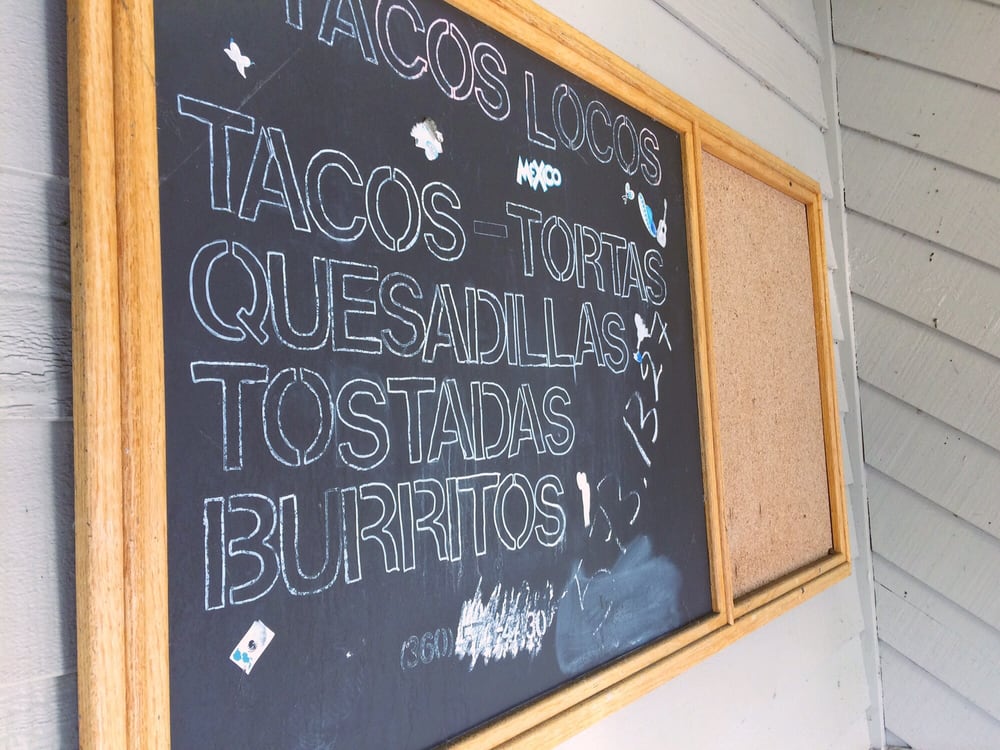 TACOS LOCOS
MEXCO
TACOS - TORTAS
QUESADILLAS
TOSTADAS
BURRITOS
(360)